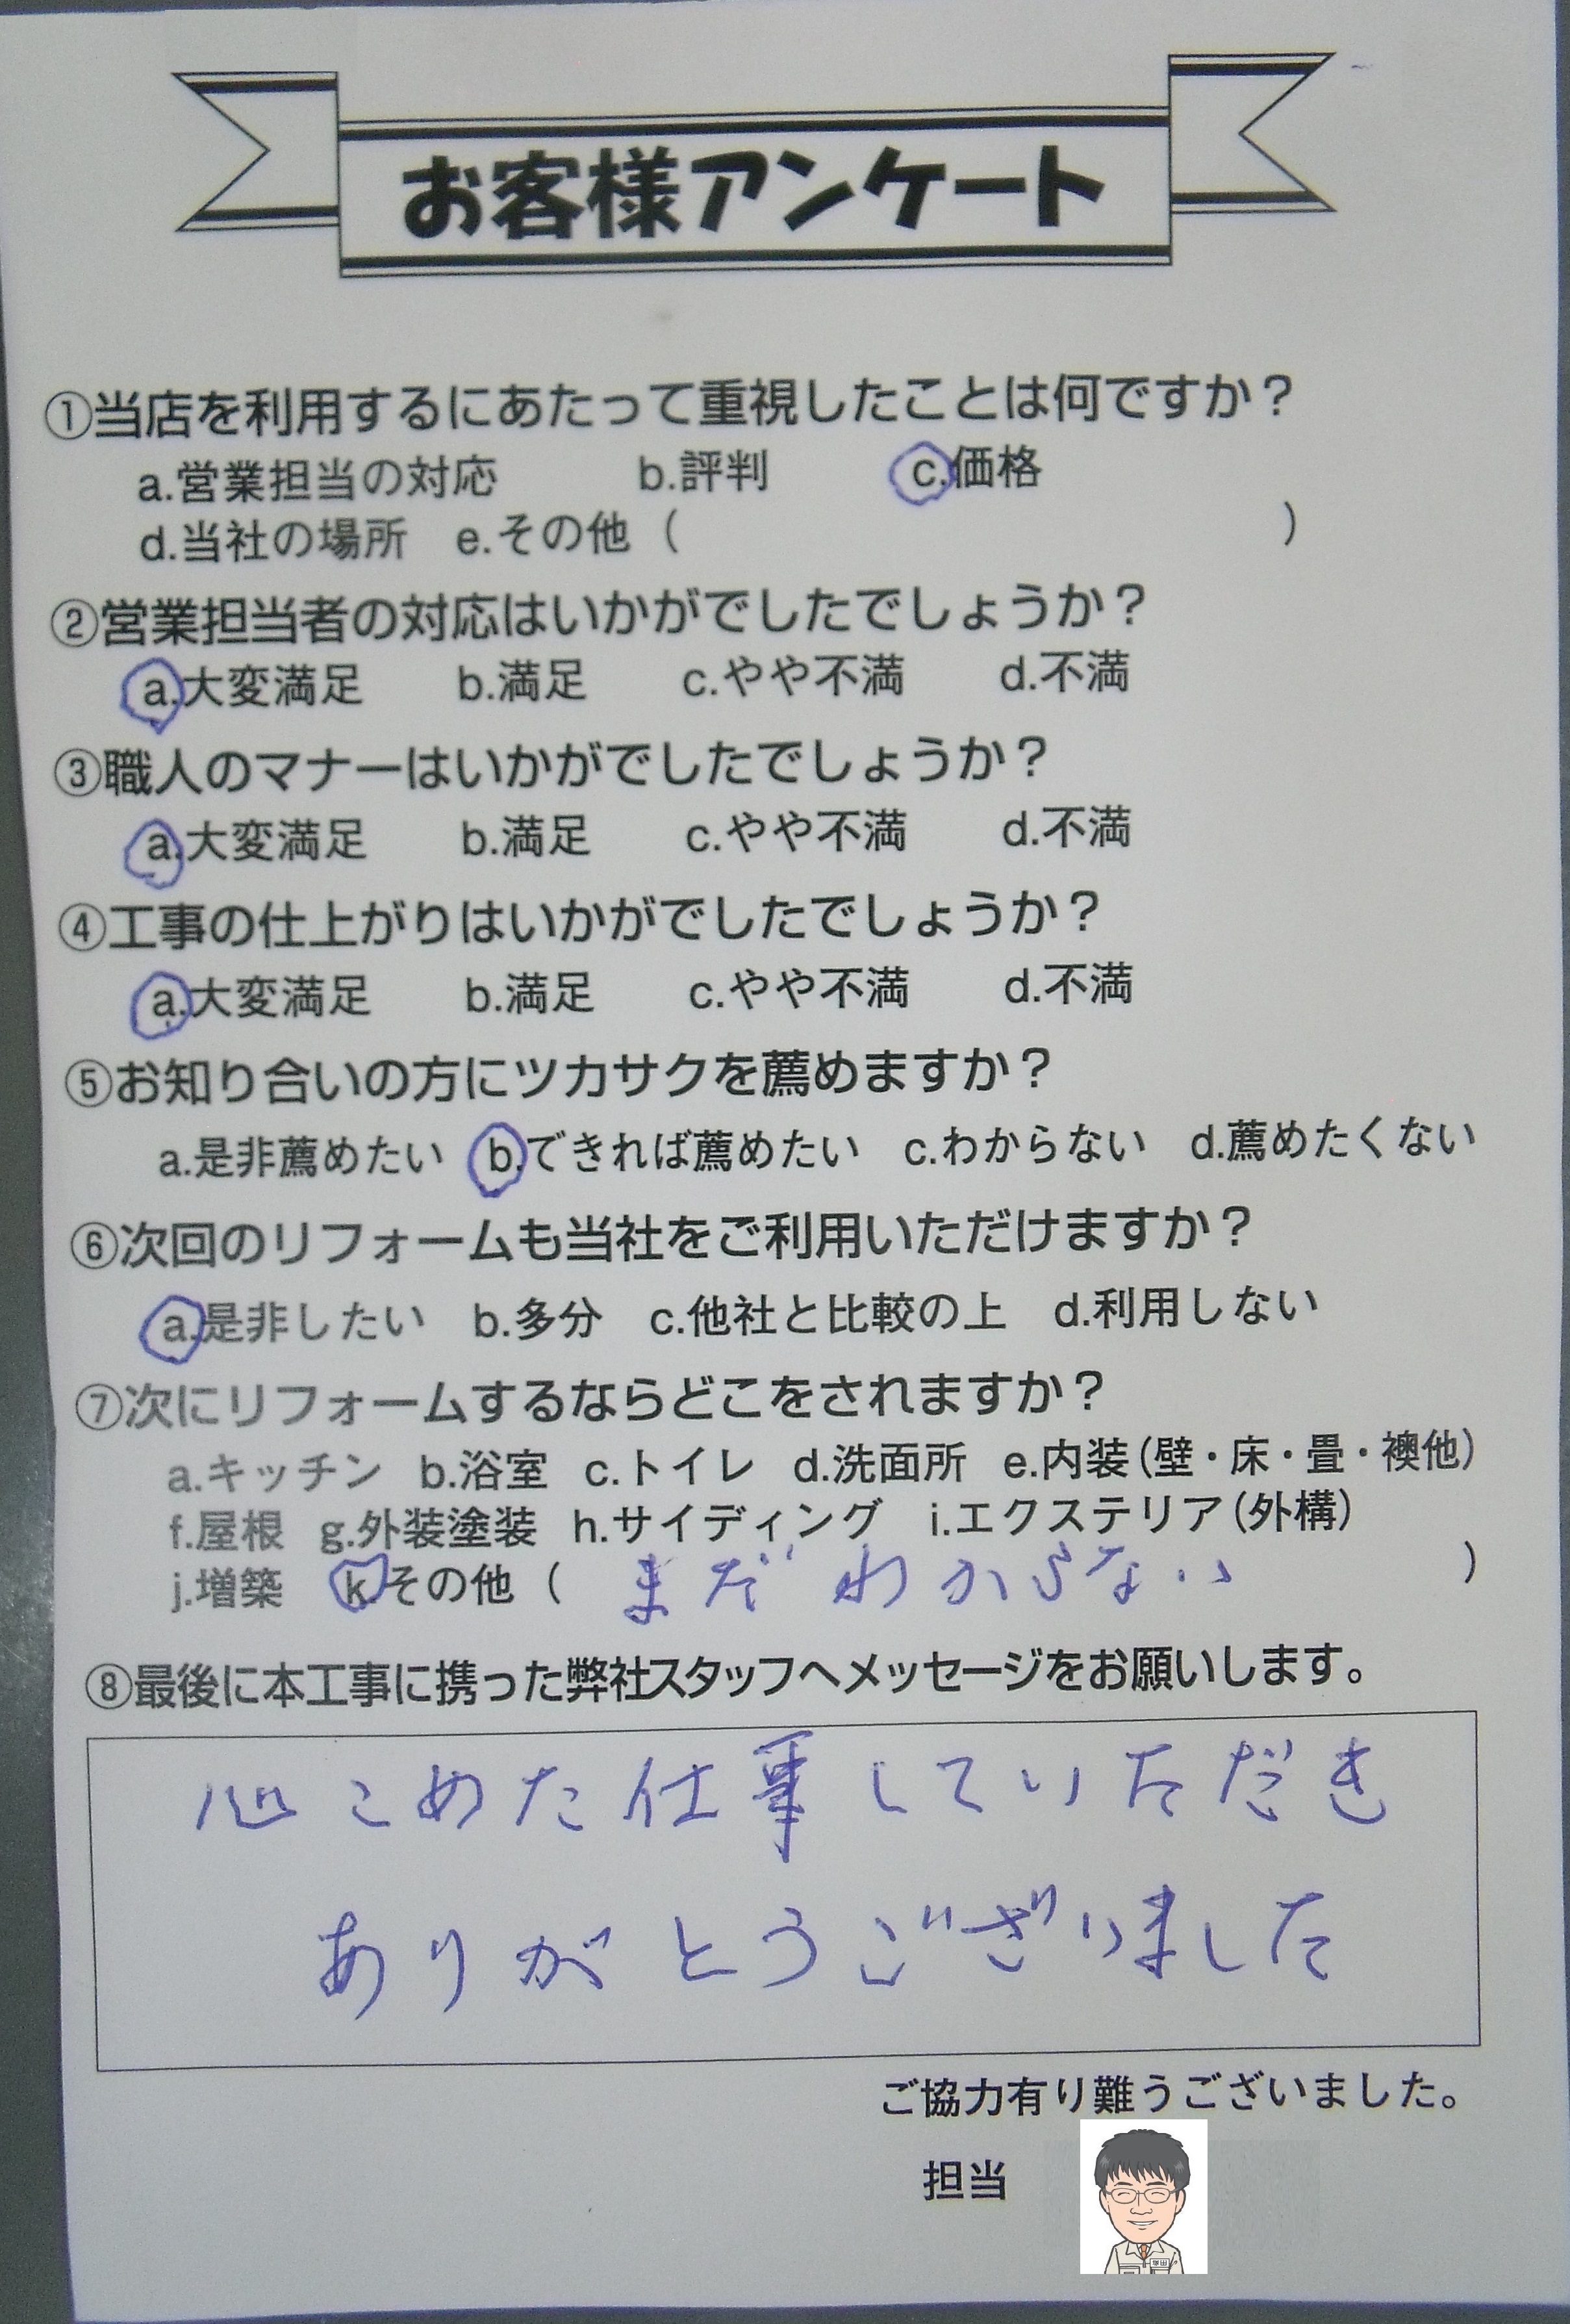 お客様アンケート
①当店を利用するにあたって重視したことは何ですか？
a.営業担当の対応 b.評判 c.価格
d.当社の場所 e.その他（ ）
②営業担当者の対応はいかがでしたでしょうか？
a.大変満足 b.満足 c.やや不満 d.不満
③職人のマナーはいかがでしたでしょうか？
a.大変満足 b.満足 c.やや不満 d.不満
④工事の仕上がりはいかがでしたでしょうか？
a.大変満足 b.満足 c.やや不満 d.不満
⑤お知り合いの方にツカサクを薦めますか？
a.是非薦めたい b.できれば薦めたい c.わからない d.薦めたくない
⑥次回のリフォームも当社をご利用いただけますか？
a.是非したい b.多分 c.他社と比較の上 d.利用しない
⑦次にリフォームするならどこをされますか？
a.キッチン b.浴室 c.トイレ d.洗面所 e.内装（壁・床・畳・襖他）
f.屋根 g.外装塗装 h.サイディング i.エクステリア（外構）
j.増築 k.その他（ まだわからない ）
⑧最後に本工事に携った弊社スタッフへメッセージをお願いします。
心こめた仕事していただき
ありがとうございました
ご協力有り難うございました。
担当